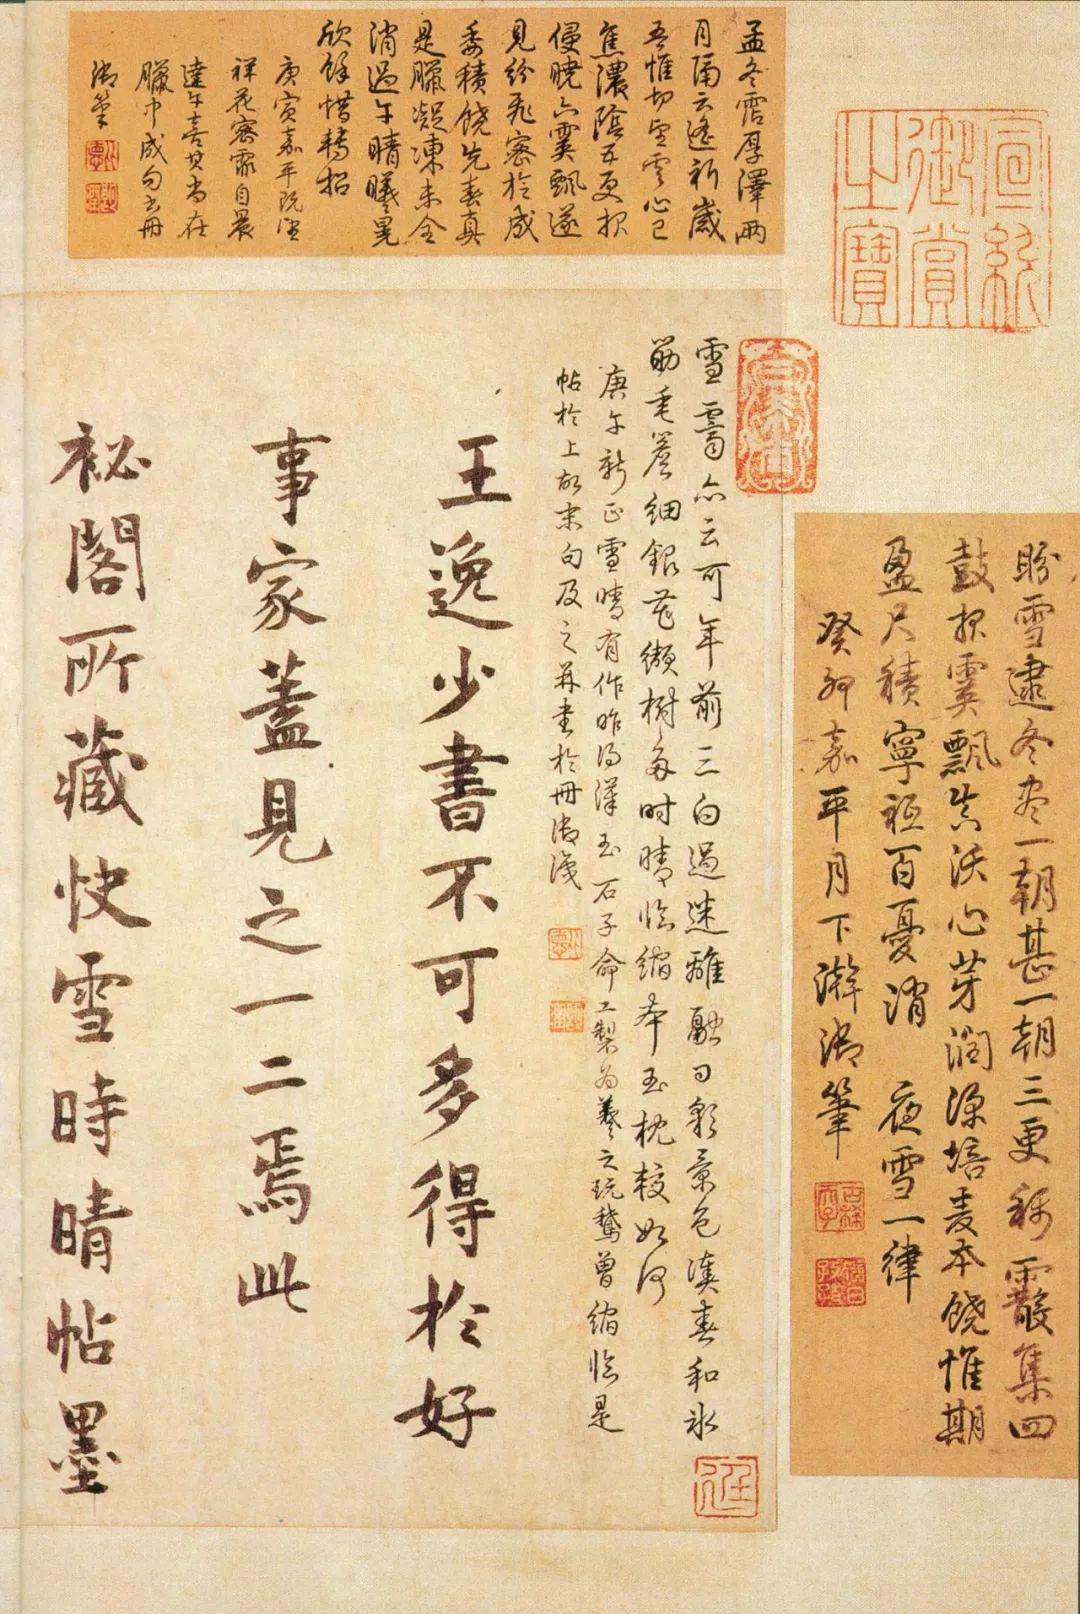 宣統
御賞
之寶
盼雪逮冬盡一朝甚一朝三更稀霰集四
鼓報霙飄其沃心芽潤深培麦本饒惟期
盈尺積寧祗百憂消 夜雪一律
癸卯嘉平月下澣御筆
古稀天子
猶日孜孜
孟冬霑厚澤兩
月隔云遙祈歲
吾惟切望雲心已
焦濃陰五更報
侵曉六霙飄遂
見紛飛密於成
委積饒先春真
是臘凝凍未全
消過午晴曦晃
欣餘惜轉招
庚寅嘉平既望
祥花密霏自晨
達午喜其尚在
臘中成句書冊
御筆
雪霽亦云可年前三白過迷離融日彩景色湊春和氷
筯垂簷細銀花纈樹多時晴臨縮本玉枕較如何
庚午新正雪晴有作昨得漢玉石子命工製為羲之玩鵞曾縮臨是
帖於上故末句及之并書於冊御識
王逸少書不可多得於好
事家蓋見之一二焉此
祕閣所藏快雪時晴帖墨